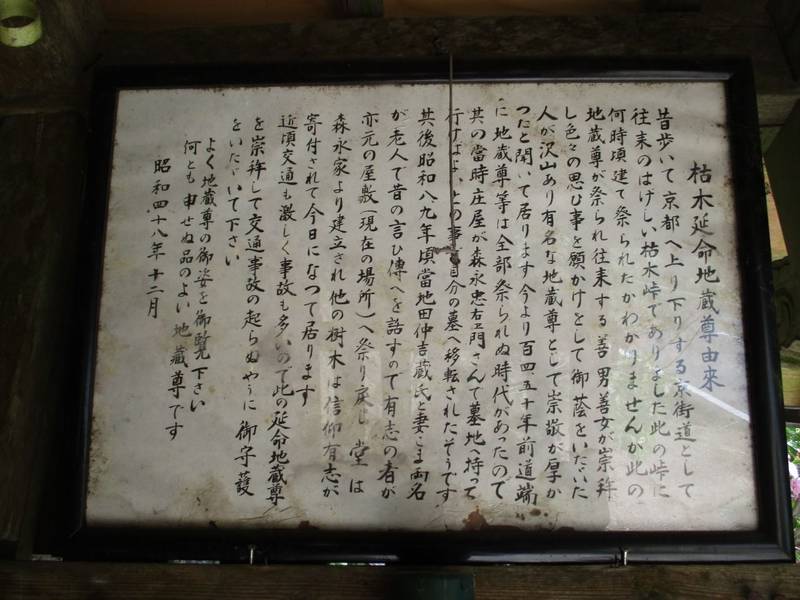 枯木延命地蔵尊由来
昔歩いて京都へ上り下りする京街道として
往来のはげしい枯木峠でありました此の峠に
何時頃建て祭られたかわかりませんが此の
地蔵尊が祭られ往来する善男善女が崇拝
し色々の思ひ事を願かけをして御蔭をいたゞいた
人が沢山あり有名な地蔵尊として崇敬が厚か
つたと聞いて居ります今より百四五十年前道端
に地蔵尊等は全部祭られぬ時代があったので
其の当時庄屋が森永忠右ヱ門さんで墓地へ持って
行けばよいとの事自分の墓へ移転されたそうです
其後昭和八九年頃當地田仲吉蔵氏と妻こま両名
が老人で昔の言ひ傳へを話すので有志の者が
亦元の屋敷(現在の場所)へ祭り戻し堂は
森永家より建立され他の樹木は信仰有志が
寄付されて今日になつて居ります
近頃交通も激しく事故も多いので此の延命地蔵尊
を崇拝して交通事故の起らぬやうに御守護
をいたゞいて下さい
よく地蔵尊の御姿を御覧下さい
何とも申せぬ品のよい地蔵尊です
昭和四十八年十二月